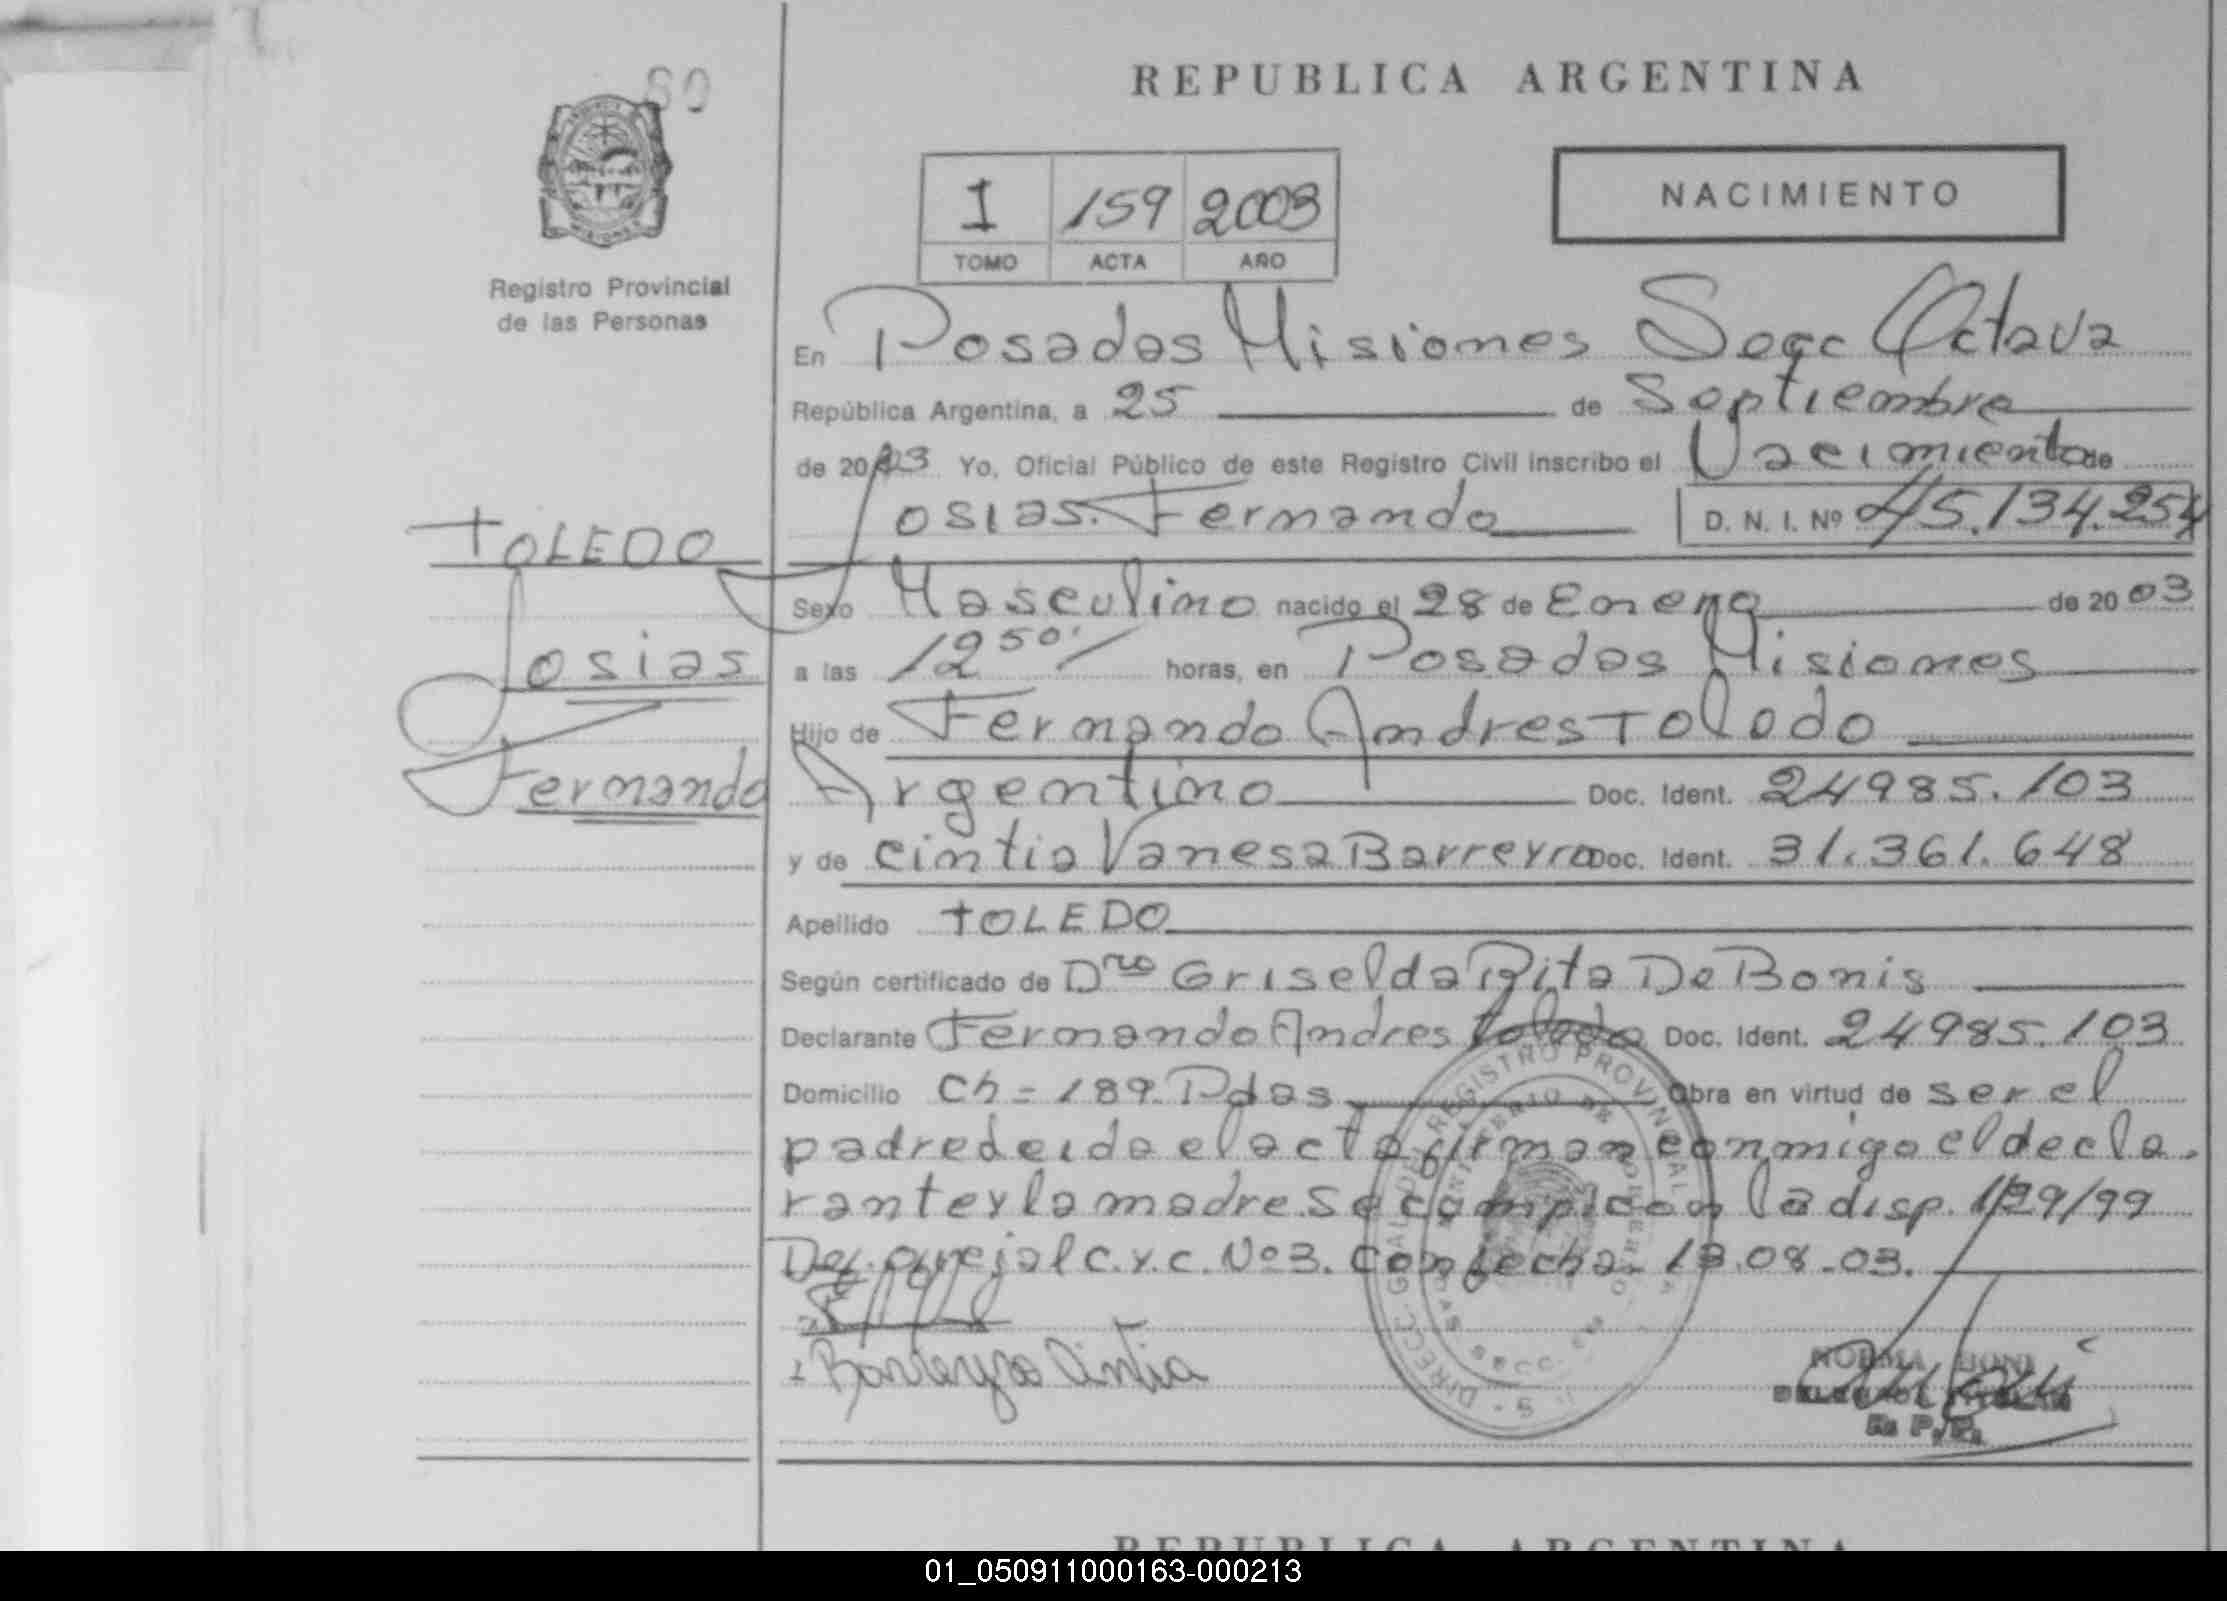 60
REPUBLICA ARGENTINA
NACIMIENTO
I 159 2003
TOMO ACTA AÑO
Registro Provincial
de las Personas
En Posadas Misiones Secc Octava
República Argentina, a 25 de Septiembre
de 2003 Yo, Oficial Público de este Registro Civil inscribo el Nacimiento de
Josias Fernando D. N. I. Nº 45.134.254
TOLEDO
Josias
Fernando
Sexo Masculino nacido el 28 de Enero de 2003
a las 12 50 horas, en Posadas Misiones
Hijo de Fernando Andres Toledo
Argentino Doc. Ident. 24985.103
y de Cintia Vanesa Barreyro Doc. Ident. 31.361.648
Apellido TOLEDO
Según certificado de Dra Griselda Rita De Bonis
Declarante Fernando Andres Toledo Doc. Ident. 24985.103
Domicilio Ch = 189. Pdas Obra en virtud de ser el
padre Leida el acta firman conmigo el decla
rante y la madre. Se cumplio con la disp. 1/29/99
C.y.c. Nº 3. Con fecha 13.08.03.
Barreyro Cintia
DIRECC. GRAL. DEL REGISTRO PROVINCIAL
MINISTERIO DE GOBIERNO
NORMA
DELEGADA TITULAR
R. P. P.
REPUBLICA ARGENTINA
01_050911000163-000213